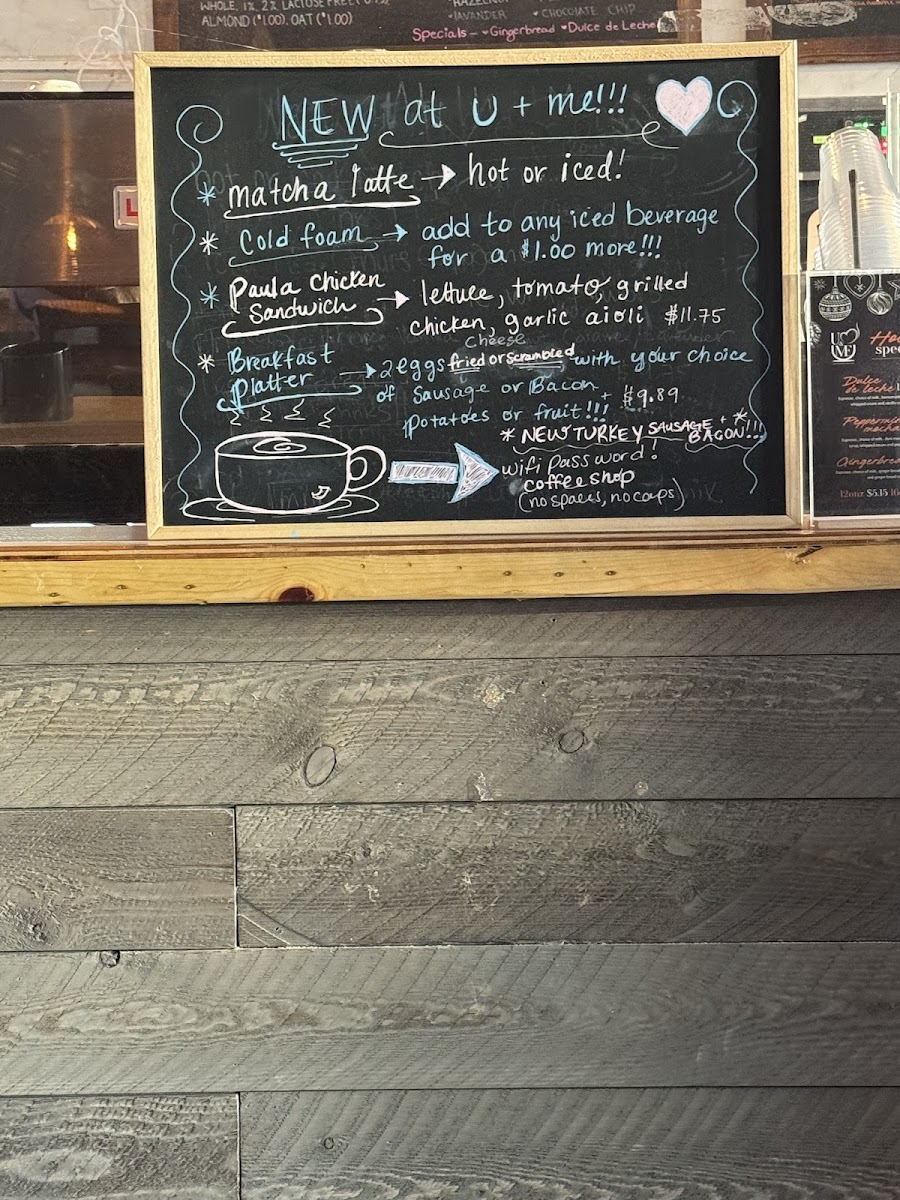 WHOLE, 1%, 2% LACTOSE FREE
ALMOND ($1.00), OAT ($1.00)
HAZELNUT
LAVANDER • CHOCOLATE CHIP
Specials - Gingerbread Dulce de Leche
NEW at U + me!!!
* matcha latte → hot or iced!
* Cold foam → add to any iced beverage
for a $1.00 more!!!
* Paula Chicken
Sandwich → lettuce, tomato, grilled
chicken, garlic aioli $11.75
cheese
* Breakfast
Platter → 2 eggs fried or scrambled with your choice
of Sausage or Bacon
+ $9.89
Potatoes or fruit!!!
* NEW TURKEY SAUSAGE + *
BACON!!!
wifi password!
coffeeshop
(no spaces, no caps)
U
ME
Dulce
de leche
Peppermint
mocha
Gingerbread
12oz $5.15